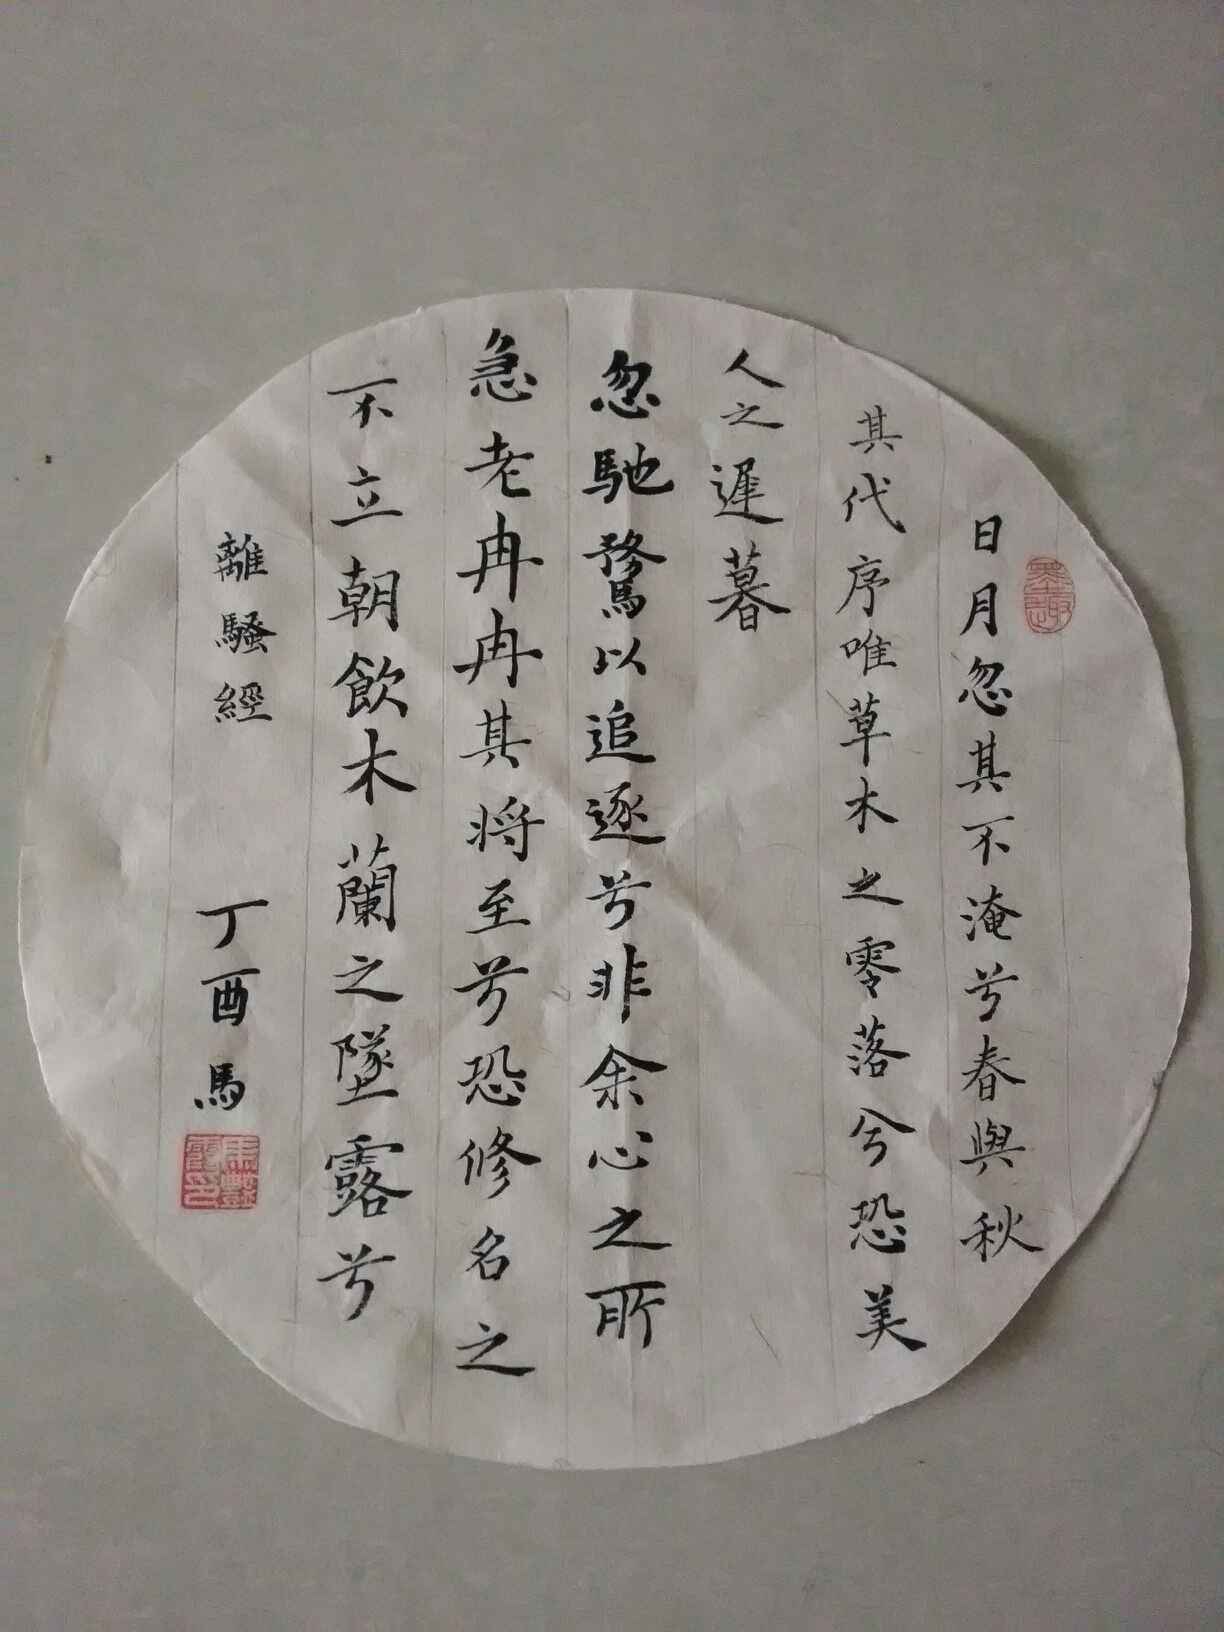 日月忽其不淹兮春與秋
其代序唯草木之零落兮恐美
人之遲暮
忽馳騖以追逐兮非余心之所
急老冉冉其將至兮恐修名之
不立朝飲木蘭之墜露兮
離騷經
丁酉馬